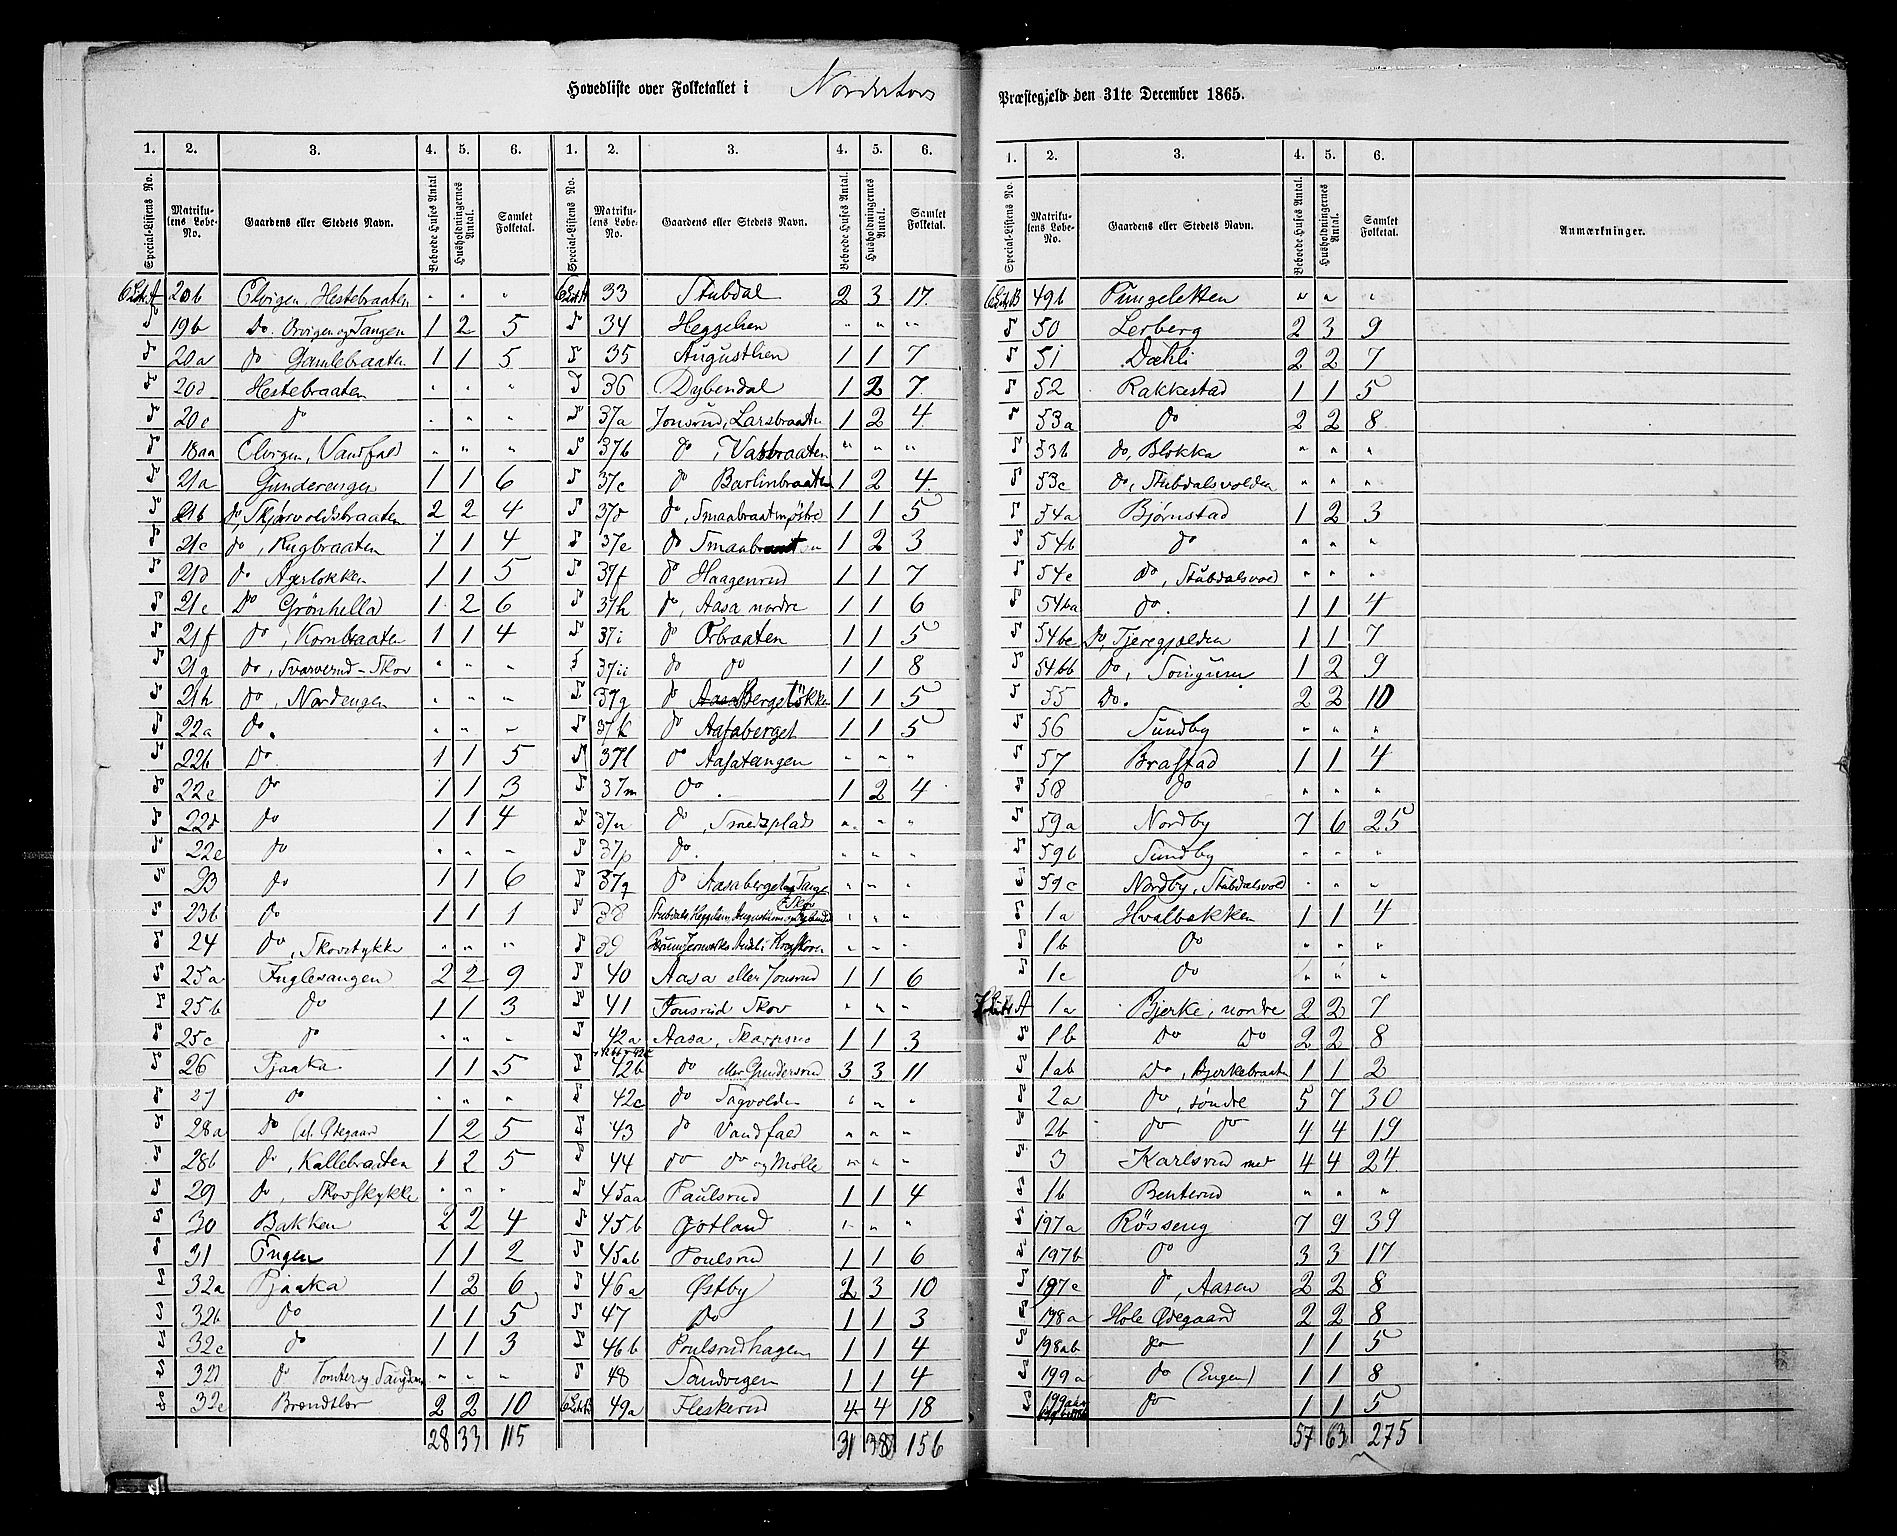 Hovedliste over Folketallet i Norderhovs Præstegjeld den 31te December 1865.
1. 2. 3. 4. 5. 6. 1. 2. 3. 4. 5. 6.
Special-Listens No. Matrikulens Løbe-No. Gaardens eller Stedets Navn. Beboede Huses Antal Husholdningernes Antal. Samlet Folketal. Special-Listens No. Matrikulens Løbe-No. Gaardens eller Stedets Navn. Beboede Huses Antal. Husholdningernes Antal. Samlet Folketal.
20b Elvigen, Hestebraaten " " "
19b Do. Orvigen og Tangen 1 2 5
20a do Gamlebraaten 1 1 5
20d Hestebraaten " " "
20c do " " "
18aa Elvigen, Vandfald " " "
21a Gunderengen 1 1 6
21b do Skjørvoldsbraaten 2 2 4
21c do, Rugbraaten 1 1 4
21d do Agerløkken 1 1 5
21e Do Grønhella 1 2 6
21f do, Kornbraaten 1 1 4
21g do, Svarverud-Skov " " "
21h do, Nordengen " " "
22a do. " " "
22b Do 1 1 5
22c do 1 1 3
22d do 1 1 4
22e do " " "
23 do 1 1 6
23b do 1 1 1
24 do, Skovstykke " " "
25a Fuglesangen 2 2 9
25b do 1 1 3
25c do " " "
26 Tjaaka 1 1 5
27 do " " "
28a Do (el. Ødegaard 1 2 5
28b do, Kallebraaten 1 2 5
29 do, Skovstykke " " "
30 Bakken 2 2 4
31 Engen 1 1 2
32a Pjaaka 1 2 6
32b do 1 1 5
32c do 1 1 3
32d do Tomter og " " "
32e Brændtløv 2 2 10
28 33 115
33 Stubdal 2 3 17
34 Heggelien " " "
35 Augustlien 1 1 7
36 Dybendal 1 2 7
37a Jonsrud, Larsbraaten 1 2 4
37b do, Vasbraaten " " "
37c do Barlinbraaten 1 2 4
37d do, Smaabraaten østre 1 1 5
37e do Smaabraaten 1 2 3
37f do Haagenrud 1 1 7
37h do, Aasa nordre 1 1 6
37i do Orbraaten 1 1 5
37ii do do 1 1 8
37g do Bergeløkken 1 1 5
37k do Aasaberget 1 1 5
37l do Aasatangen " " "
37m do. 1 2 4
37n do, Smedsplads " " "
37p do. " " "
37q do Aasaberget og Tangen " " "
38 Stubdals, Heggeliens, Augustliens og Dybendals Skov " " "
39 Bærums Jernværks Andel i Krogskoven " " "
40 Aasa eller Jonsrud 1 1 6
41 Jonsrud Skov " " "
42a Aasa, Skarpsno 1 1 3
42b do eller Gundersrud 3 3 11
42c do Sagvolden " " "
43 do Vandfald " " "
44 do do og Mølle " " "
45aa Paulsrud 1 1 4
45b Gotland " " "
45ab Poulsrud 1 1 6
46a Østby 2 3 10
47 Do 1 1 3
46b Poulsrudhagen 1 1 4
48 Sandvigen 1 1 4
49a Fleskerud 4 4 18
31 38 156
1. 2. 3. 4. 5. 6.
Special-Listens No. Matrikulens Løbe-No. Gaardens eller Stedets Navn. Beboede Huses Antal. Husholdningernes Antal. Samlet Folketal. Anmærkninger.
49b Pungeletten " " "
50 Lerberg 2 3 9
51 Dæhli 2 2 7
52 Rakkestad 1 1 5
53a do 2 2 8
53b do, Blokka " " "
53c do, Stubdalsvolden " " "
54a Bjørnstad 1 2 3
54b do " " "
54c do, Stubdalsvold " " "
54ba do. 1 1 4
54bc do, Tjeregjælden 1 1 7
54bb do, 1 2 9
55 Do. 2 2 10
56 Sundby " " "
57 Brastad 1 1 4
58 do " " "
59a Nordby 7 6 25
59b Sundby " " "
59c Nordby, Stubdalsvold " " "
1a Hvalbakken 1 1 4
1b do " " "
1c do " " "
1a Bjerke, nordre 2 2 7
1b Do Do 2 2 8
1ab Do, Bjerkebraaten 1 1 2
2a do, søndre 5 7 30
2b do do 4 4 19
3 Karlsrud med 4 4 24
1b Benterud " " "
197a Røsseng 7 9 39
197b do 3 3 17
197c do, Aasen 2 2 8
198a Hole Ødegaard 2 2 8
198ab do 1 1 5
199a do (Engen) 1 1 8
do 1 1 5
57 63 275